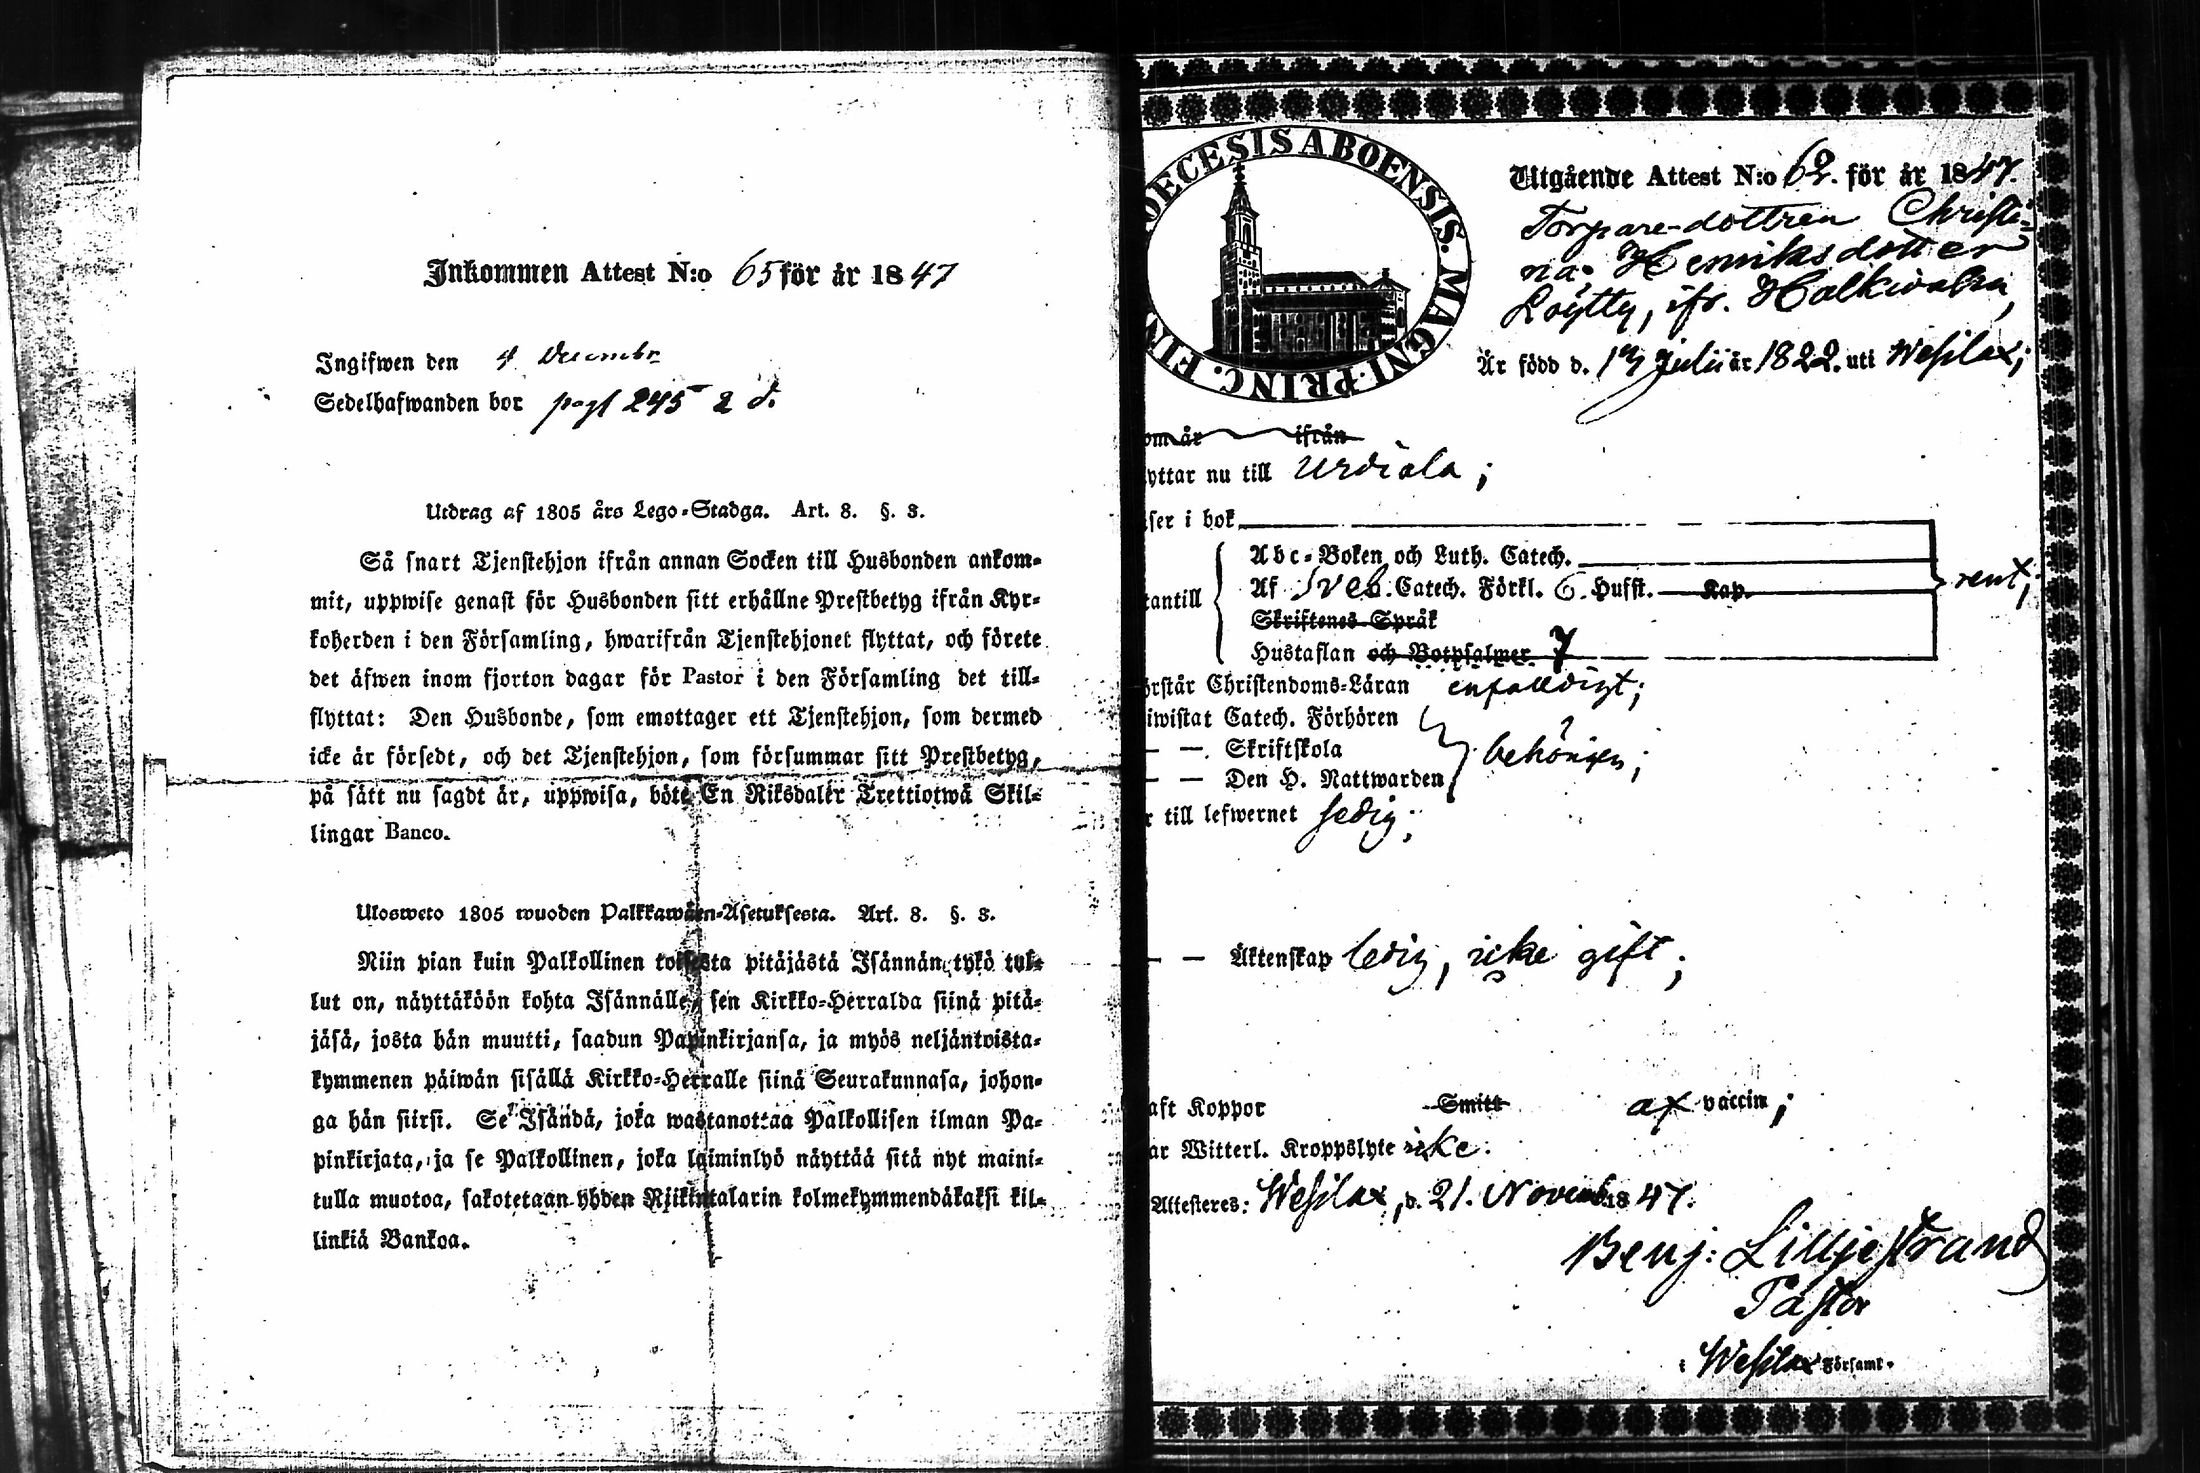 Inkommen Attest N:o 65 för år 1847
Ingifwen den 4 Decembr
Sedelhafwanden bor pag 245 2 d.
Utdrag af 1805 års Lego-Stadga. Art. 8. §. 3.
Så snart Tjenstehjon ifrån annan Socken till Husbonden ankom-
mit, uppwise genast för Husbonden sitt erhållne Prestbetyg ifrån Kyr-
koherden i den Församling, hwarifrån Tjenstehjonet flyttat, och förete
det äfwen inom fjorton dagar för Pastor i den Församling det till-
flyttat: Den Husbonde, som emottager ett Tjenstehjon, som dermed
icke är försedt, och det Tjenstehjon, som försummar sitt Prestbetyg,
på sätt nu sagdt är, uppwisa, böte En Riksdaler Trettiotwå Skil-
lingar Banco.
Ulosweto 1805 wuoden Palkkawäen-Asetuksesta. Art. 8. §. 3.
Niin pian kuin Palkollinen toisesta pitäjästä Isännän tykö tul-
lut on, näyttäköön kohta Isännälle, sen Kirkko-Herralda siinä pitä-
jäsä, josta hän muutti, saadun Papinkirjansa, ja myös neljäntoista-
kymmenen päiwän sisällä Kirkko-Herralle siinä Seurakunnasa, johon-
ga hän siirsi. Se Isändä, joka wastanottaa Palkollisen ilman Pa-
pinkirjata, ja se Palkollinen, joka laiminlyö näyttää sitä nyt maini-
tulla muotoa, sakotetaan yhden Rjikintalarin kolmekymmendäkaksi kil-
linkiä Bankoa.
OECESIS ABOENSIS. MAGNI PRINC. FIN
Utgående Attest N:o 62. för år 1847.
Torpare-dottren Christi-
na Henriksdotter
Löytty, ifr. Halkivaha,
År född d. 17 Julii år 1822. uti Wesilax;
om år ifrån
yttar nu till Urdiala;
äser i bok
Abc-Boken och Luth. Catech.
tantill Af Sveb. Catech. Förkl. 6. Hufst. Kap. rent;
Skriftenes Språk
Hustaflan och Botpsalmer 7
örstår Christendoms-Läran enfaldigt;
iwistat Catech. Förhören
— — Skriftskola behörigen;
— — Den H. Nattwarden
r till lefwernet sedig;
— — Äktenskap ledig, icke gift;
aft Koppor Smitt af vaccin;
ar Witterl. Kroppslyte icke.
Attesteres: Wesilax, d. 21. Novemb. 1847.
Benj: Lilljestrand
Pastor
i Wesilax Församl.